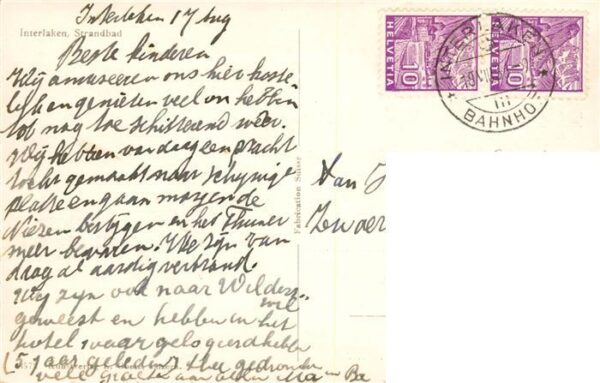 Interlaken 17 Aug
Interlaken, Strandbad
Beste kinderen
Wij amuseeren ons hier koste
lijk en genieten veel en hebben
tot nog toe schitterend weer.
Wij hebben vandaag een pracht
tocht gemaakt naar Schynige
platte en gaan morgen de
Niezen bestijgen en het Thuner
meer bevaren. We zijn van
daag al aardig verbrand.
Wij zijn ook naar Wilders
wil
geweest en hebben in het
hotel, waar gelogeerd hebben
(5 jaar geleden) thee gedronken
vele groeten aan allen Ma en Pa
HELVETIA 10
HELVETIA 10
INTERLAKEN
BAHNHO
Fabrication Suisse
Aan